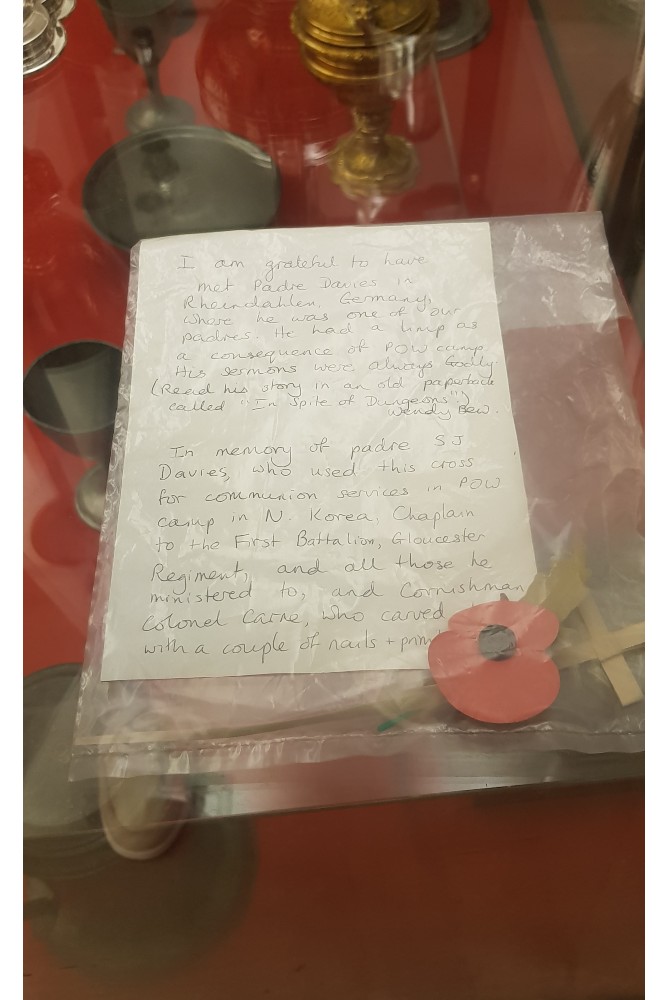 I am grateful to have
met Padre Davies in
Rheindahlen, Germany,
where he was one of our
padres. He had a limp as
a consequence of POW camp.
His sermons were always Godly.
(Read his story in an old paperback
called "In Spite of Dungeons".)
Wendy Bew.
In memory of padre SJ
Davies, who used this cross
for communion services in POW
camp in N. Korea, Chaplain
to the First Battalion, Gloucester
Regiment, and all those he
ministered to, and Cornishman
Colonel Carne, who carved
with a couple of nails +